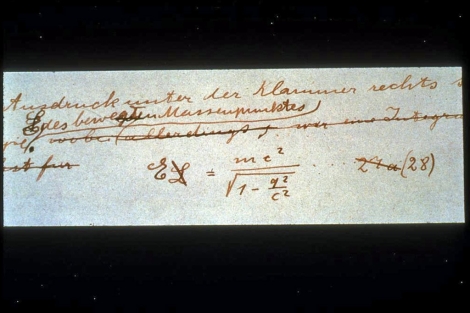 Ausdruck unter der Klammer rechts
E des bewegten Massenpunktes
wobei allerdings
ist für
E L = mc² / √(1 - q²/c²) ... 27a (28)